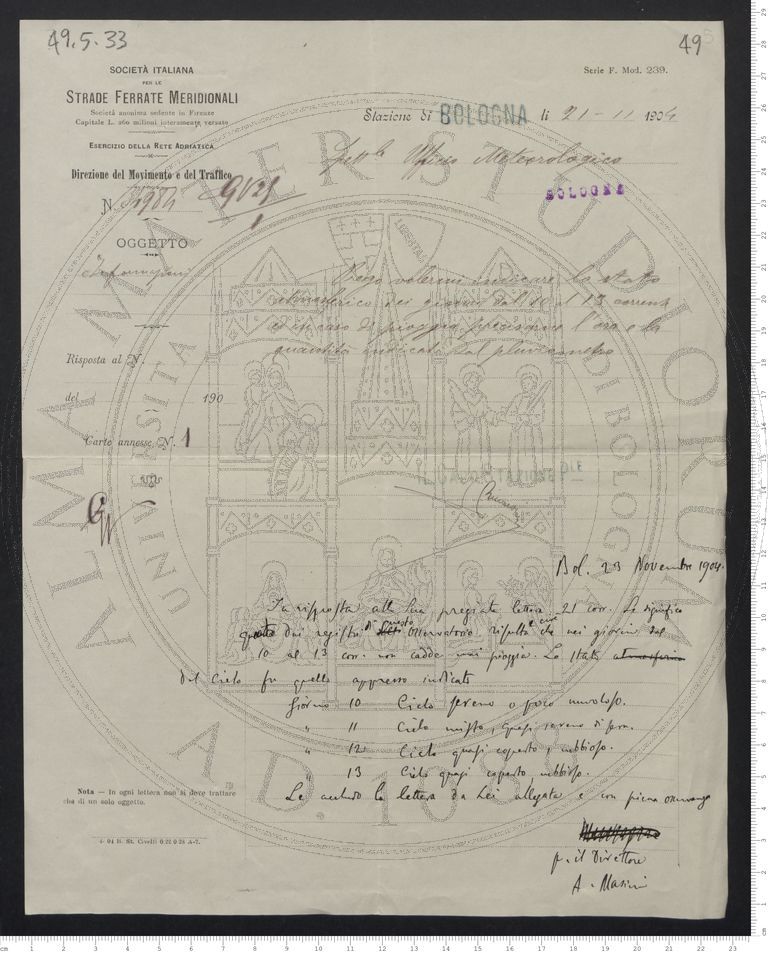 49.5.33
49
SOCIETÀ ITALIANA
PER LE
STRADE FERRATE MERIDIONALI
Società anonima sedente in Firenze
Capitale L. 260 milioni interamente versato
ESERCIZIO DELLA RETE ADRIATICA
Direzione del Movimento e del Traffico
Serie F. Mod. 239.
Stazione di BOLOGNA li 21-11 1904
Spettle Ufficio Meteorologico
BOLOGNA
N.
OGGETTO
Informazioni
Prego volermi indicare lo stato
atmosferico dei giorni dal 10 al 13 corrente
e in caso di pioggia precisarne l'ora e la
quantità indicata dal pluviometro
Risposta al N.
del 190
Carte annesse N. 1
IL CAPO STAZIONE Ple
Bol. 23 Novembre 1904.
In risposta alla Sua pregiata lettera 21 corr. Le significo
che dai registri di questo Osservatorio risulta che nei giorni dal
10 al 13 corr. non cadde mai pioggia. Lo stato atmosferico
del Cielo fu quello appresso indicato
Giorno 10 Cielo sereno o poco nuvoloso.
" 11 Cielo misto, quasi sereno di sera.
" 12 Cielo quasi coperto, nebbioso.
" 13 Cielo quasi coperto nebbioso.
Le accludo la lettera da Lei allegata e con piena osservanza
p. il Direttore
A. Masini
Nota — In ogni lettera non si deve trattare
che di un solo oggetto.
ALMA MATER STUDIORUM
UNIVERSITÀ DI BOLOGNA
A.D. 1088
LIBERTAS